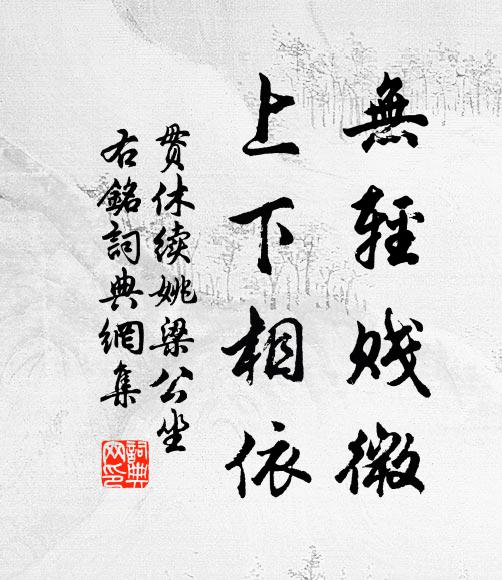 無輕贱微
上下相依
贯休续姚梁公坐
右銘詞典網集
詞典网印